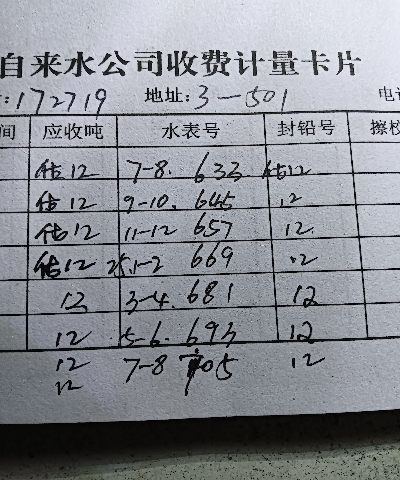 自来水公司收费计量卡片
:172719 地址:3-501 电
间 应收吨 水表号 封铅号 擦校
估12 7-8. 633 估12
估12 9-10. 645 12
估12 11-12 657 12.
估12 25.1-2 669 12
12 3-4. 681 12
12 5-6. 693 12
12 7-8 705 12
12